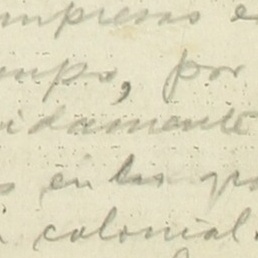 impresas e
mpo, por
idamente
s en las gra
colonial.